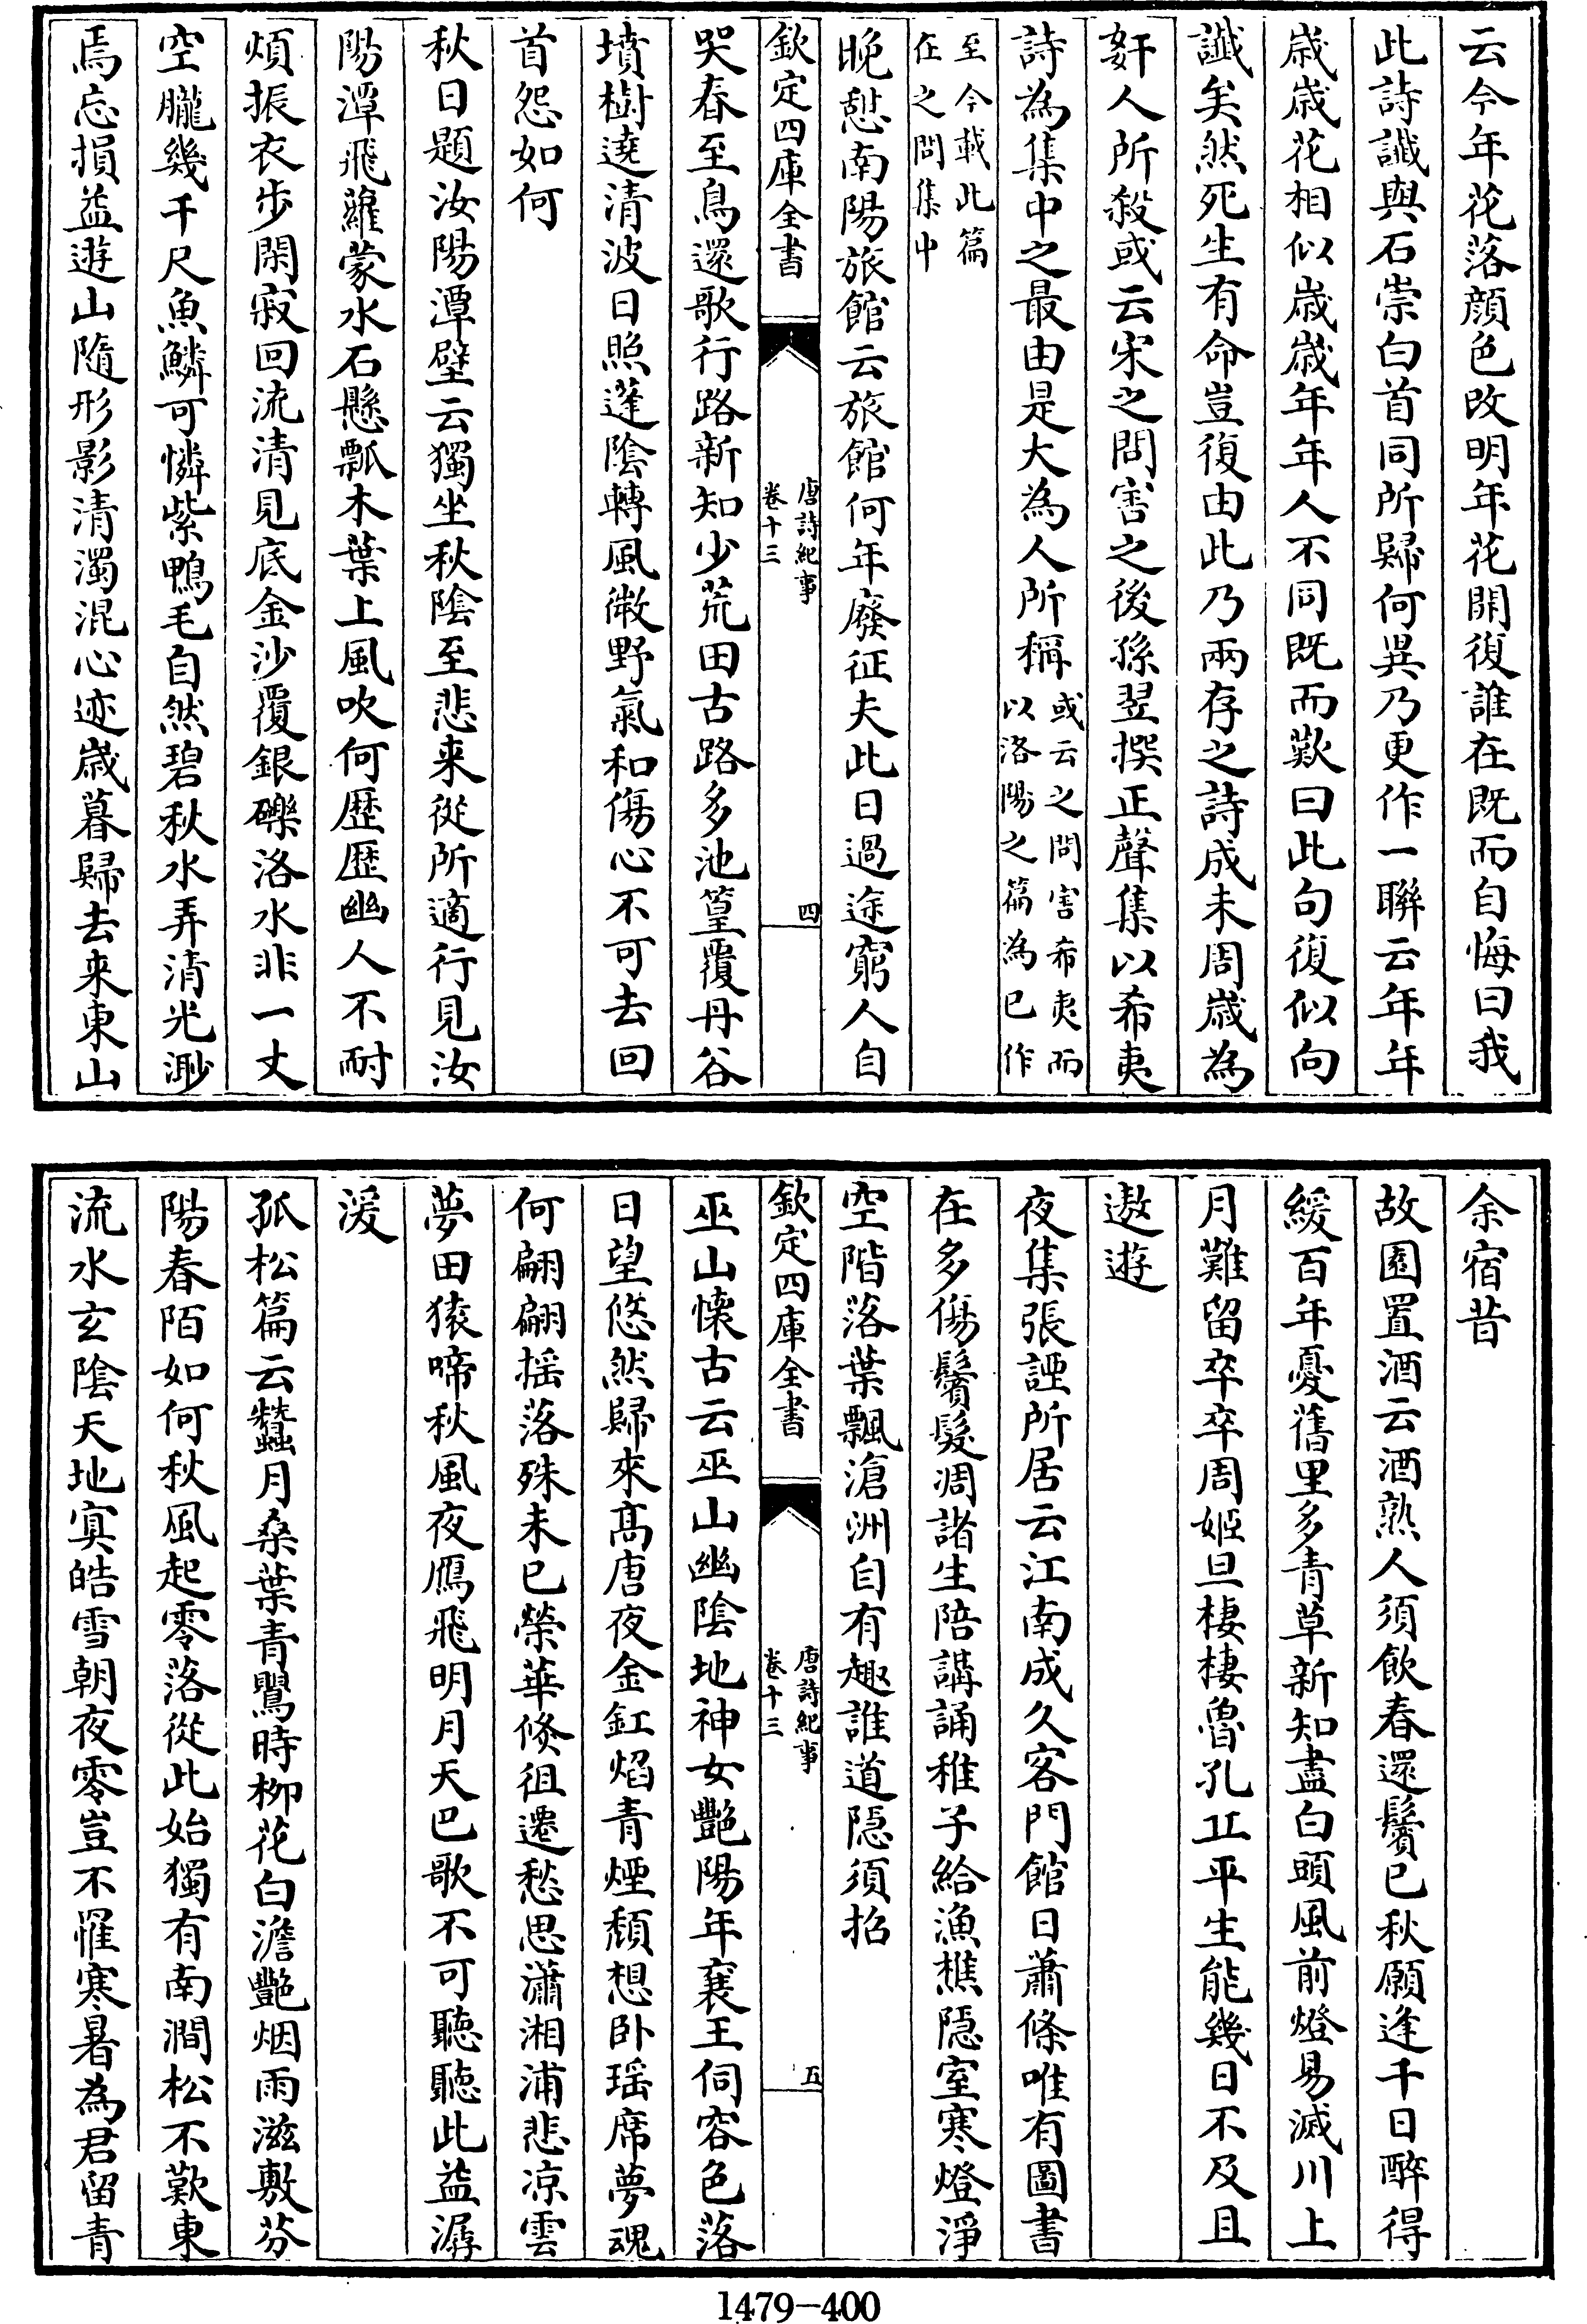 云今年花落顔色改明年花開復誰在既而自悔曰我
此詩讖與石崇白首同所歸何異乃更作一聯云年年
歲歲花相似歲歲年年人不同既而歎曰此句復似向
讖矣然死生有命豈復由此乃兩存之詩成未周歲為
奸人所殺或云宋之問害之後孫翌撰正聲集以希夷
詩為集中之最由是大為人所稱
或云之問害希夷而
以洛陽之篇為己作
至今載此篇
在之問集中
晚憇南陽旅館云旅館何年廢征夫此日過途窮人自
欽定四庫全書
唐詩紀事
卷十三
四
哭春至鳥還歌行路新知少荒田古路多池篁覆丹谷
墳樹遶清波日照蓬陰轉風微野氣和傷心不可去回
首怨如何
秋日題汝陽潭壁云獨坐秋陰至悲来從所適行見汝
陽潭飛蘿蒙水石懸瓢木葉上風吹何歷歷幽人不耐
煩振衣步閑寂回流清見底金沙覆銀礫洛水非一丈
空朧幾千尺魚鱗可憐紫鴨毛自然碧秋水弄清光渺
焉忘損益遊山隨形影清濁混心迹歲暮歸去来東山
余宿昔
故園置酒云酒熟人須飲春還鬢已秋願逢千日醉得
緩百年憂舊里多青草新知盡白頭風前燈易滅川上
月難留卒卒周姬旦棲棲魯孔丘平生能幾日不及且
遨遊
夜集張諲所居云江南成久客門館日蕭條唯有圖書
在多傷鬢髮凋諸生陪講誦稚子給漁樵隱室寒燈淨
空階落葉飄滄洲自有趣誰道隱須招
欽定四庫全書
唐詩紀事
卷十三
五
巫山懷古云巫山幽陰地神女艷陽年襄王伺容色落
日望悠然歸來髙唐夜金釭焰青煙頽想卧瑶席夢魂
何翩翩揺落殊未已榮華倏徂遷愁思瀟湘浦悲凉雲
夢田猿啼秋風夜鴈飛明月天巴歌不可聽聽此益潺
湲
孤松篇云蠶月桑葉青鶯時柳花白澹艷烟雨滋敷芬
陽春陌如何秋風起零落從此始獨有南澗松不歎東
流水玄陰天地寘皓雪朝夜零豈不罹寒暑為君留青
1479-400